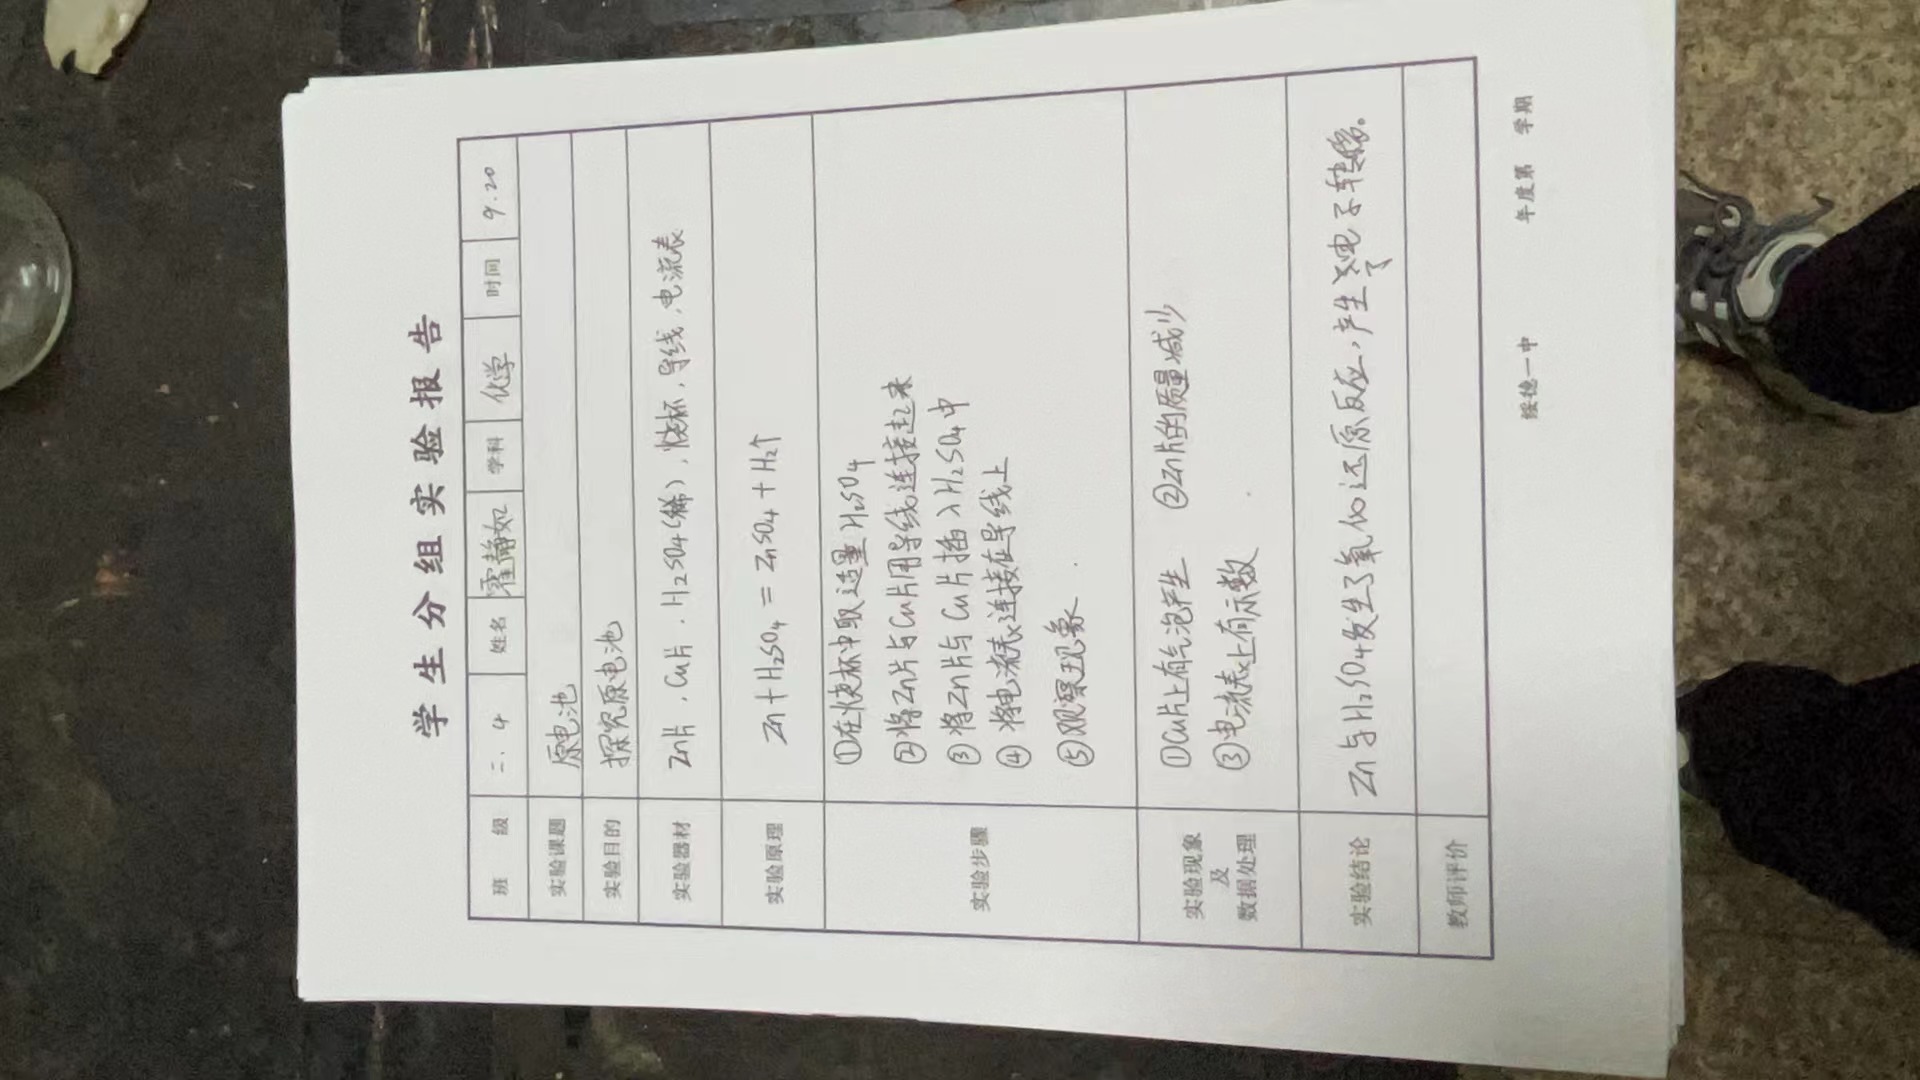 学生分组实验报告
班 级 二.4 姓名 霍静如 学科 化学 时间 9.20
实验课题 原电池
实验目的 探究原电池
实验器材 Zn片，Cu片，H₂SO₄(稀)，烧杯，导线，电流表
实验原理 Zn+H₂SO₄=ZnSO₄+H₂↑
实验步骤
①在烧杯中取适量H₂SO₄
②将Zn片与Cu片用导线连接起来
③将Zn片与Cu片插入H₂SO₄中
④将电流表连接在导线上
⑤观察现象
实验现象
及
数据处理
①Cu片上有气泡产生 ②Zn片的质量减少
③电流表上有示数
实验结论 Zn与H₂SO₄发生了氧化还原反应，产生了电子转移。
教师评价
绥德一中 年度第 学期